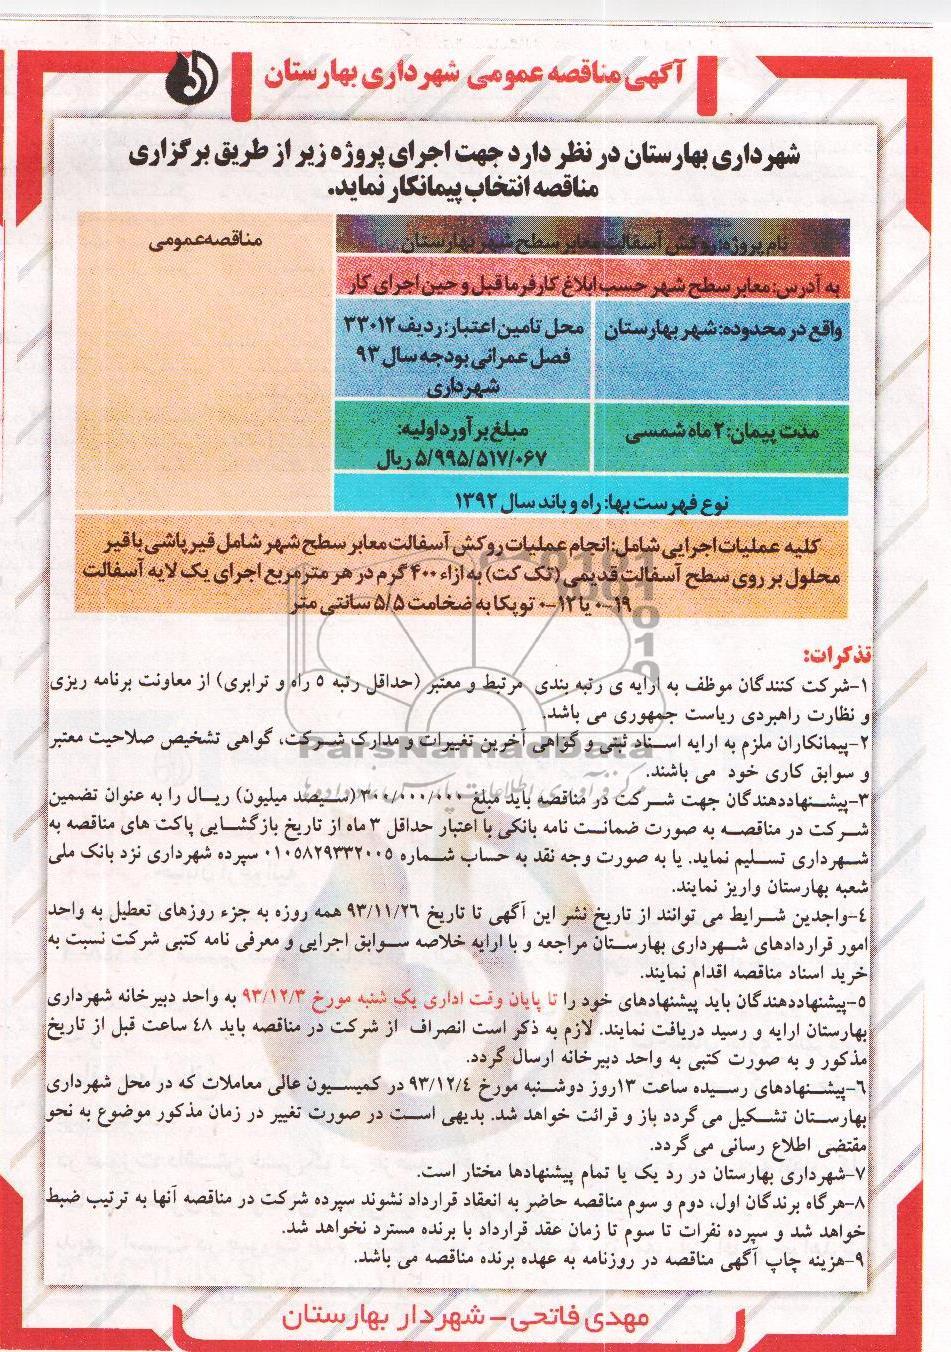 آگهی مناقصه عمومی شهرداری بهارستان
شهرداری بهارستان در نظر دارد جهت اجرای پروژه زیر از طریق برگزاری
مناقصه انتخاب پیمانکار نماید.
نام پروژه: روکش آسفالت معابر سطح شهر بهارستان
مناقصه عمومی
به آدرس: معابر سطح شهر حسب ابلاغ کارفرما قبل و حین اجرای کار
واقع در محدوده: شهر بهارستان
محل تامین اعتبار: ردیف ۳۳۰۱۲
فصل عمرانی بودجه سال ۹۳
شهرداری
مدت پیمان: ۲ ماه شمسی
مبلغ برآورد اولیه:
۵/۹۹۵/۵۱۷/۰۶۷ ریال
نوع فهرست بها: راه و باند سال ۱۳۹۲
کلیه عملیات اجرایی شامل: انجام عملیات روکش آسفالت معابر سطح شهر شامل قیرپاشی با قیر
محلول بر روی سطح آسفالت قدیمی (تک کت) به ازاء ۴۰۰ گرم در هر مترمربع اجرای یک لایه آسفالت
۰-۱۹ یا ۱۲-۰ توپکا به ضخامت ۵/۵ سانتی متر
تذکرات:
۱-شرکت کنندگان موظف به ارایه ی رتبه بندی مرتبط و معتبر (حداقل رتبه ۵ راه و ترابری) از معاونت برنامه ریزی
و نظارت راهبردی ریاست جمهوری می باشد.
۲-پیمانکاران ملزم به ارایه اسناد ثبتی و گواهی آخرین تغییرات و مدارک شرکت، گواهی تشخیص صلاحیت معتبر
و سوابق کاری خود می باشند.
۳-پیشنهاددهندگان جهت شرکت در مناقصه باید مبلغ ۳۰۰/۰۰۰/۰۰۰ (سیصد میلیون) ریال را به عنوان تضمین
شرکت در مناقصه به صورت ضمانت نامه بانکی با اعتبار حداقل ۳ ماه از تاریخ بازگشایی پاکت های مناقصه به
شهرداری تسلیم نماید. یا به صورت وجه نقد به حساب شماره ۰۱۰۵۸۲۹۳۳۲۰۰۵ سپرده شهرداری نزد بانک ملی
شعبه بهارستان واریز نمایند.
۴-واجدین شرایط می توانند از تاریخ نشر این آگهی تا تاریخ ۹۳/۱۱/۲۶ همه روزه به جزء روزهای تعطیل به واحد
امور قراردادهای شهرداری بهارستان مراجعه و با ارایه خلاصه سوابق اجرایی و معرفی نامه کتبی شرکت نسبت به
خرید اسناد مناقصه اقدام نمایند.
۵-پیشنهاددهندگان باید پیشنهادهای خود را تا پایان وقت اداری یک شنبه مورخ ۹۳/۱۲/۳ به واحد دبیرخانه شهرداری
بهارستان ارایه و رسید دریافت نمایند. لازم به ذکر است انصراف از شرکت در مناقصه باید ۴۸ ساعت قبل از تاریخ
مذکور و به صورت کتبی به واحد دبیرخانه ارسال گردد.
۶-پیشنهادهای رسیده ساعت ۱۳روز دوشنبه مورخ ۹۳/۱۲/۴ در کمیسیون عالی معاملات که در محل شهرداری
بهارستان تشکیل می گردد باز و قرائت خواهد شد. بدیهی است در صورت تغییر در زمان مذکور موضوع به نحو
مقتضی اطلاع رسانی می گردد.
۷-شهرداری بهارستان در رد یک یا تمام پیشنهادها مختار است.
۸-هرگاه برندگان اول، دوم و سوم مناقصه حاضر به انعقاد قرارداد نشوند سپرده شرکت در مناقصه آنها به ترتیب ضبط
خواهد شد و سپرده نفرات تا سوم تا زمان عقد قرارداد با برنده مسترد نخواهد شد.
۹-هزینه چاپ آگهی مناقصه در روزنامه به عهده برنده مناقصه می باشد.
مهدی فاتحی-شهردار بهارستان
ParsNamadData